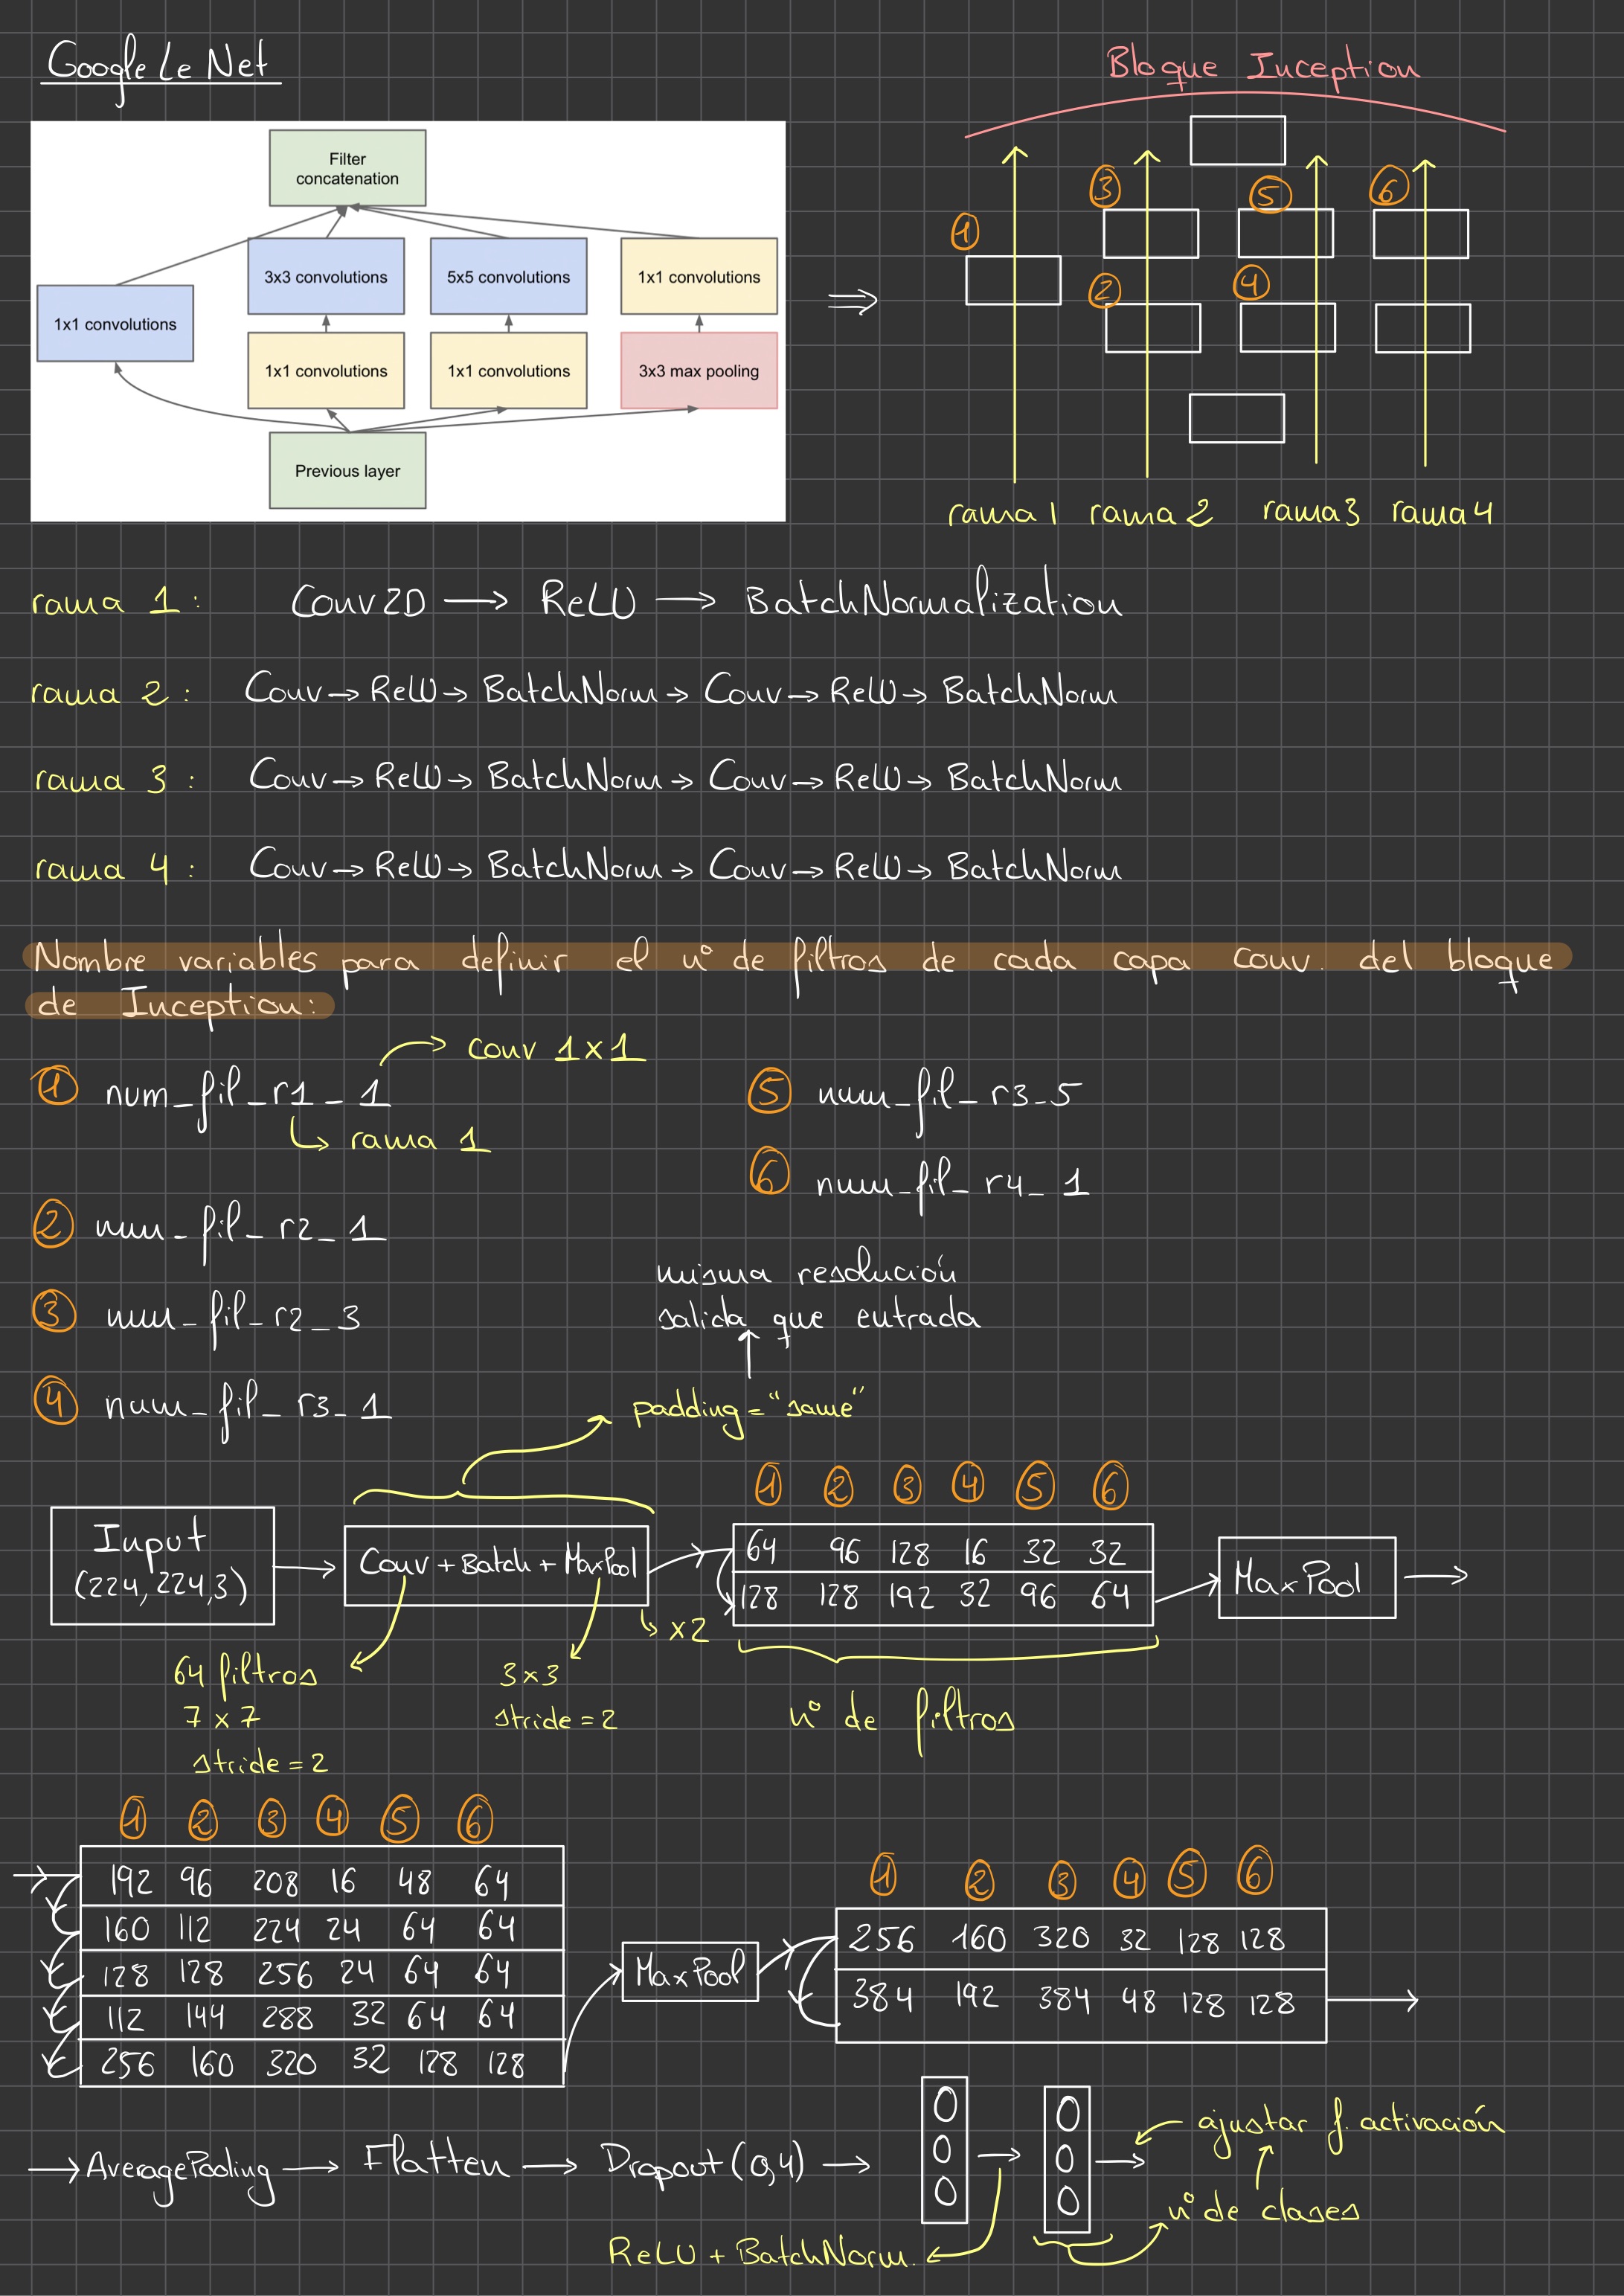 GoogleLeNet
Bloque Inception
Filter
concatenation
3x3 convolutions
5x5 convolutions
1x1 convolutions
1x1 convolutions
1x1 convolutions
1x1 convolutions
3x3 max pooling
Previous layer
⇒
① ③ ⑤ ⑥
② ④
rama 1 rama 2 rama 3 rama 4
rama 1: Conv2D → ReLU → BatchNormalization
rama 2: Conv → ReLU → BatchNorm → Conv → ReLU → BatchNorm
rama 3: Conv → ReLU → BatchNorm → Conv → ReLU → BatchNorm
rama 4: Conv → ReLU → BatchNorm → Conv → ReLU → BatchNorm
Nombre variables para definir el nº de filtros de cada capa conv. del bloque
de Inception:
→ conv 1x1
① num_fil_r1_1
→ rama 1
② num_fil_r2_1
③ num_fil_r2_3
④ num_fil_r3_1
⑤ num_fil_r3_5
⑥ num_fil_r4_1
misma resolución
salida que entrada
padding = "same"
Input
(224,224,3)
Conv + Batch + MaxPool
x2
64 filtros
7 x 7
stride = 2
3 x 3
stride = 2
① ② ③ ④ ⑤ ⑥
64 96 128 16 32 32
128 128 192 32 96 64
nº de filtros
MaxPool
① ② ③ ④ ⑤ ⑥
192 96 208 16 48 64
160 112 224 24 64 64
128 128 256 24 64 64
112 144 288 32 64 64
256 160 320 32 128 128
MaxPool
① ② ③ ④ ⑤ ⑥
256 160 320 32 128 128
384 192 384 48 128 128
→ AveragePooling → Flatten → Dropout (0,4) →
ReLU + BatchNorm.
ajustar f. activación
nº de clases